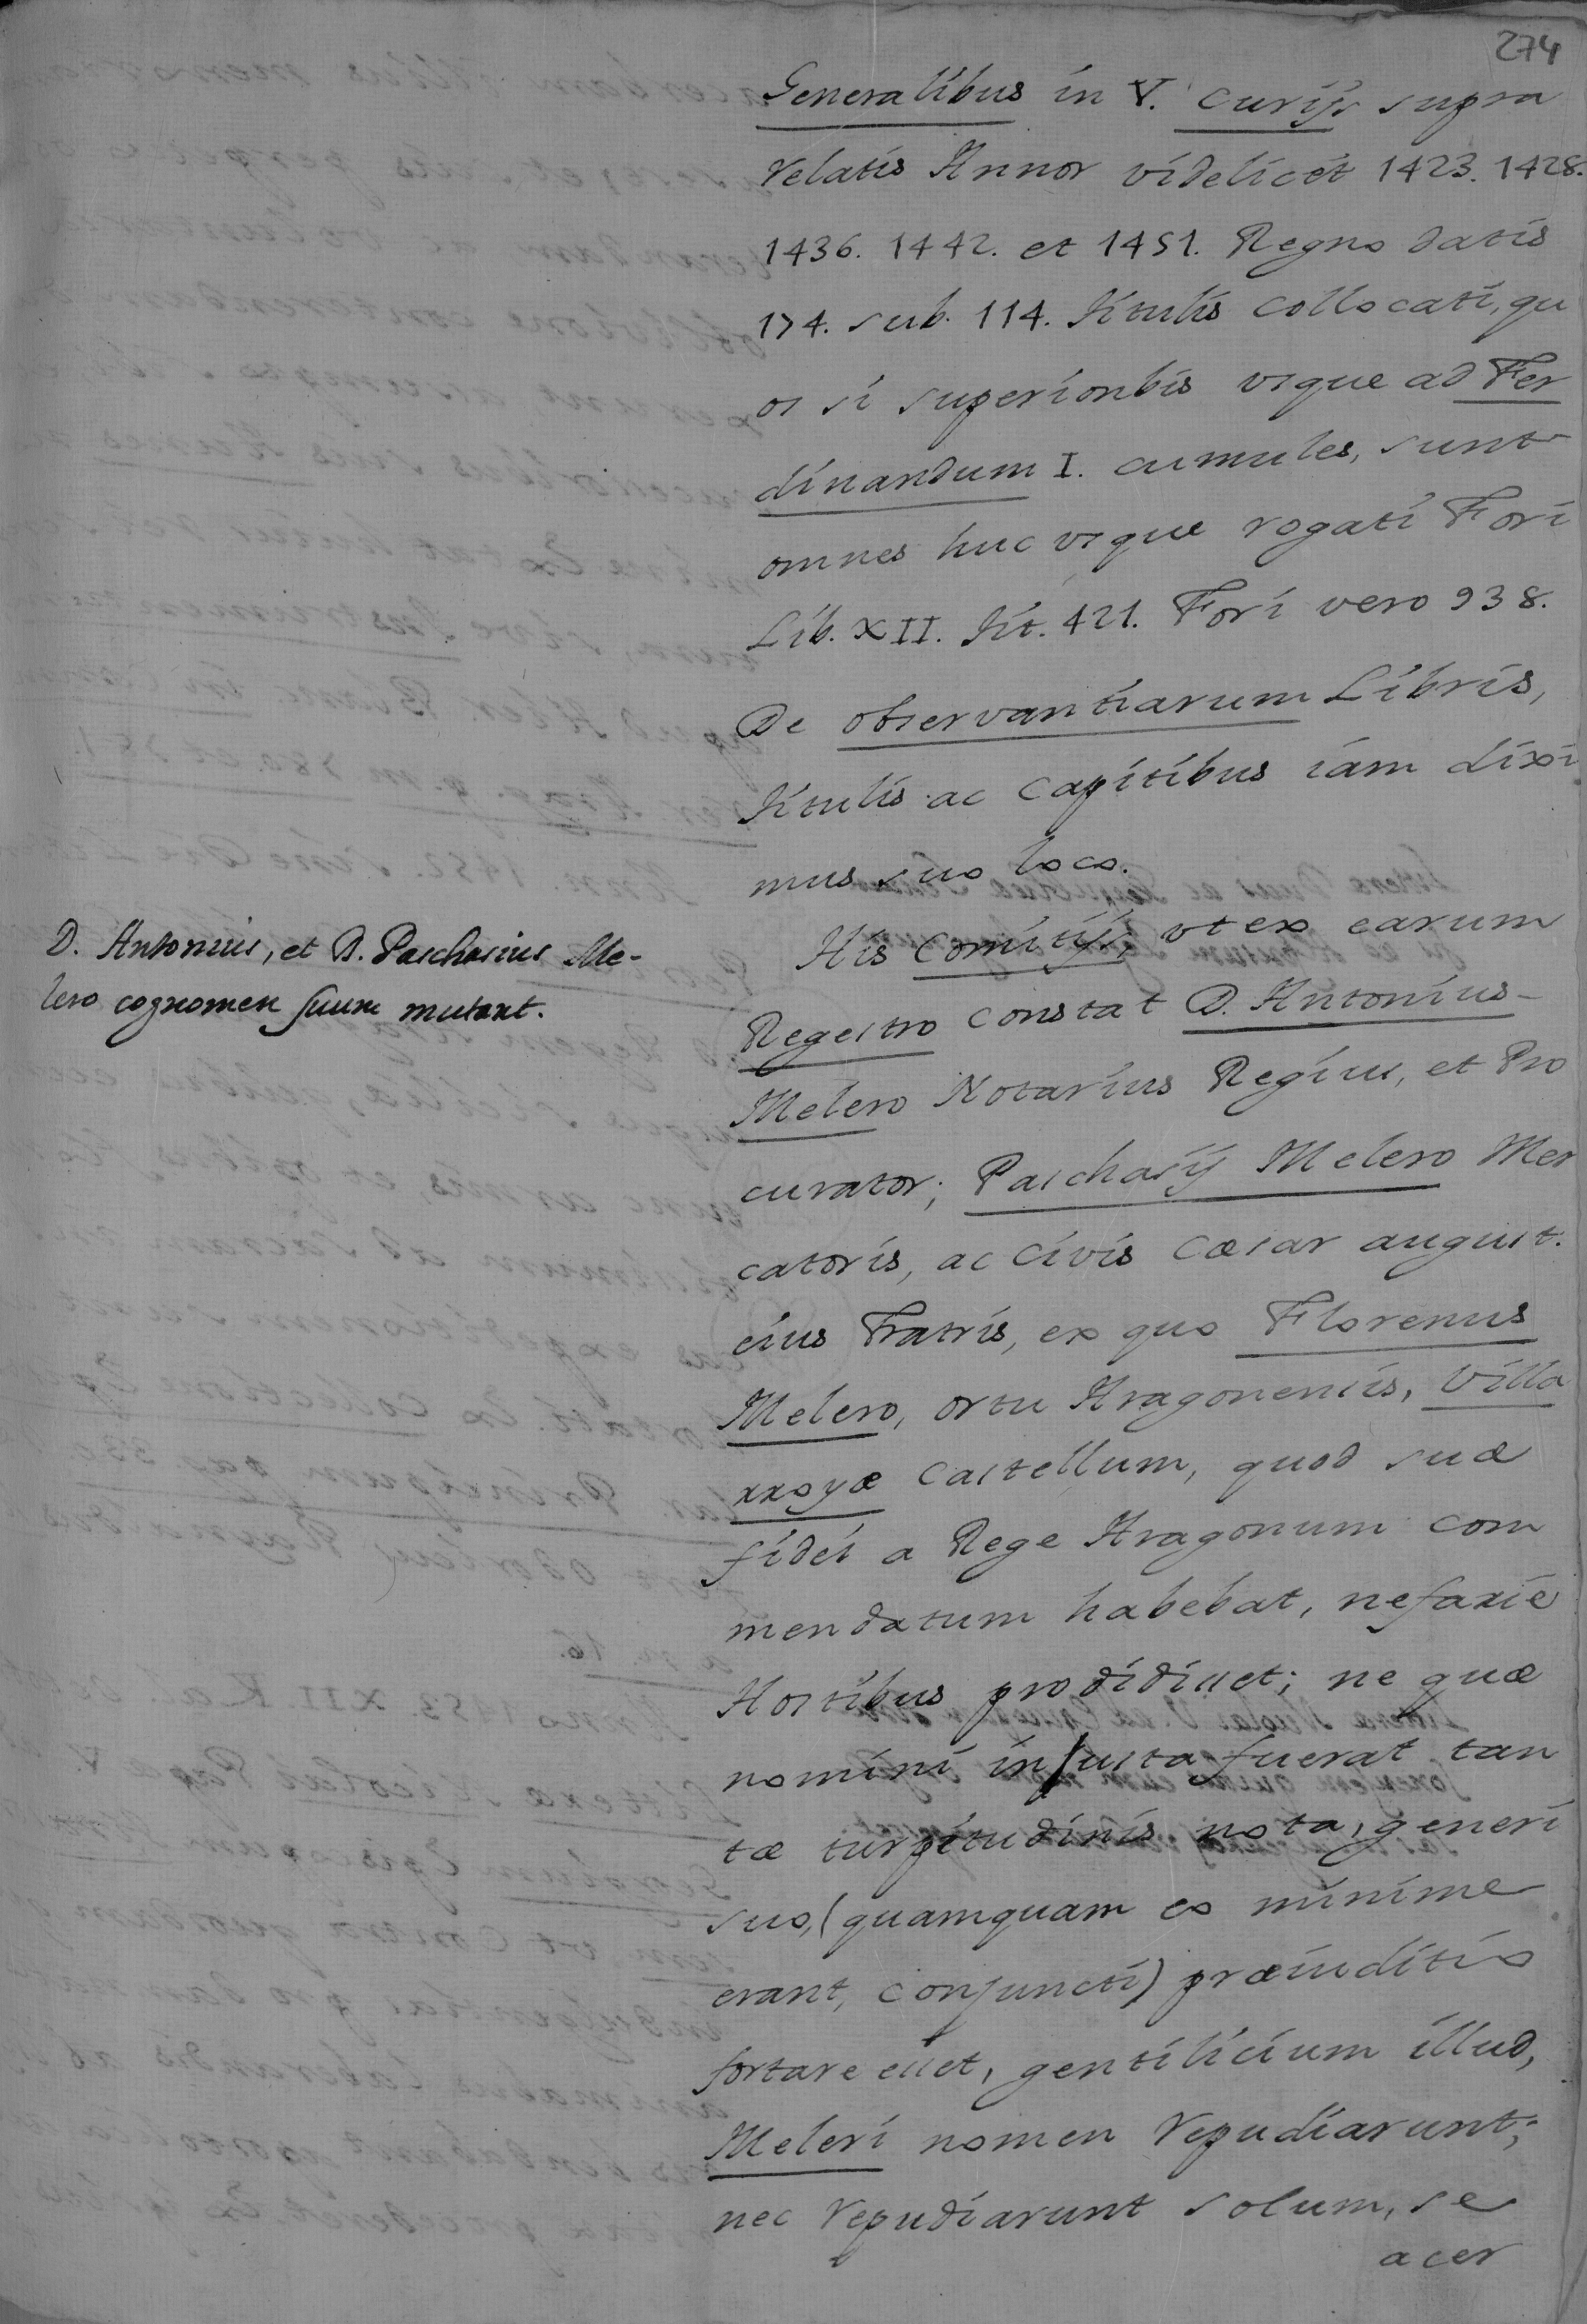 274
Generalibus in V. Curijs supra
relatis Annor videlicet 1423. 1428.
1436. 1442. et 1451. Regno datis
174. sub. 114. Titulis collocati, qu
os si superioribis vsque ad Fer
dinandum I. cumules, sunt
omnes huc vsque rogati Fori
Lib. XII. Tit. 421. Fori vero 938.
De observantiarum Libris,
Titulis ac capitibus iam dixi
mus suo loco.
D. Antonius, et D. Paschasius Me-
lero cognomen suum mutant.
His Comitijs, vt ex earum
Regestro constat D. Antonius
Melero Notarius Regius, et Pro
curator; Paschasij Melero Mer
catoris, ac civis Cæsar august.
eius Fratris, ex quo Florenus
Melero, ortu Aragonensis, Villa
rroyæ castellum, quod suæ
fidei a Rege Aragonum com
mendatum habebat, nefarie
Hostibus prodidisset; ne quæ
nomini injusta fuerat tan
tæ turpitudinis nota, generi
suo, (quamquam eo minime
erant, conjuncti) præiuditio
fortare esset, gentilicium illud,
Meleri nomen repudiarunt;
nec repudiarunt solum, se
acer